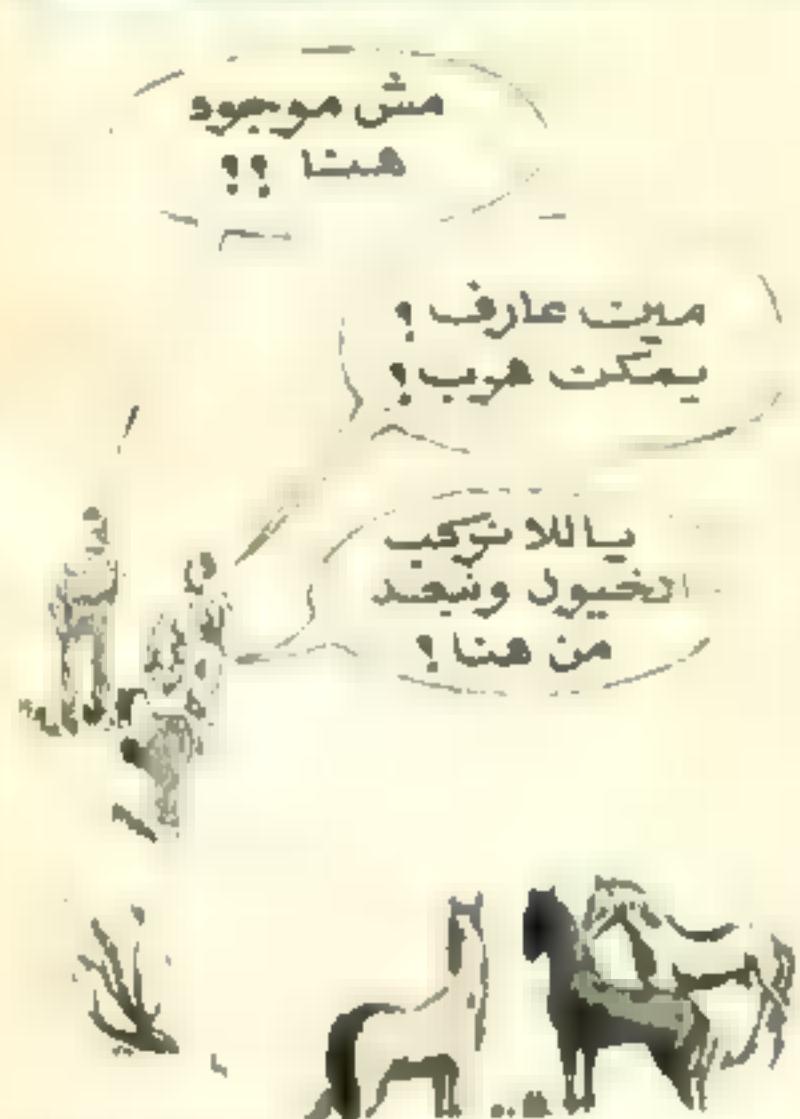 مش موجود
هنا ؟؟
مين عارف ؟
يمكن هرب ؟
ياللا نركب
الخيول ونبعد
من هنا ؟